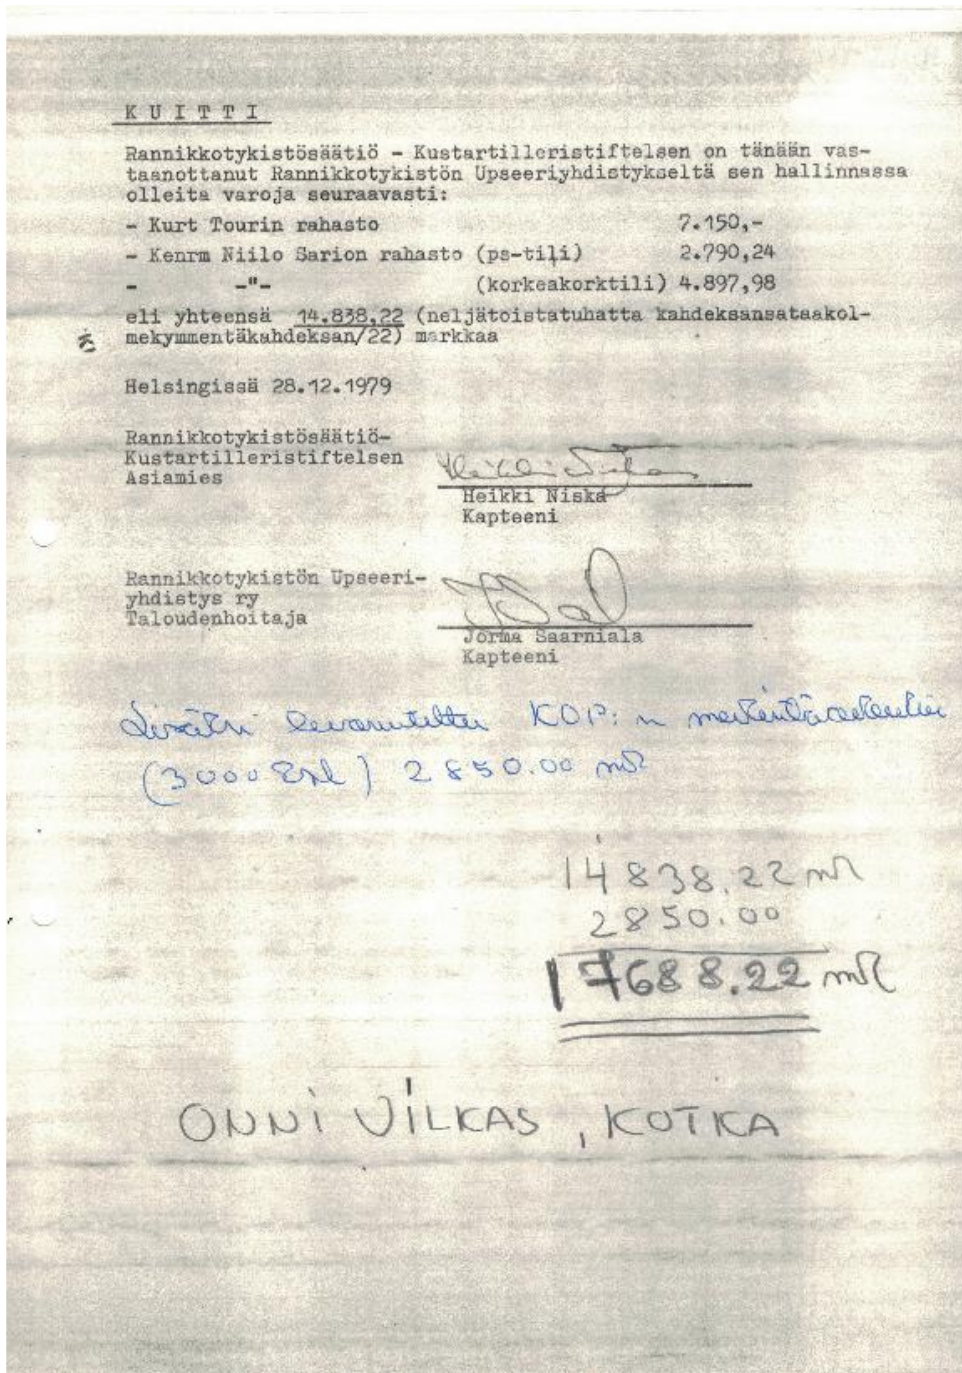 K U I T T I
Rannikkotykistösäätiö - Kustartilleristiftelsen on tänään vas-
taanottanut Rannikkotykistön Upseeriyhdistykseltä sen hallinnassa
olleita varoja seuraavasti:
- Kurt Tourin rahasto 7.150,-
- Kenrm Niilo Sarion rahasto (ps-tili) 2.790,24
- -"- (korkeakorktili) 4.897,98
eli yhteensä 14.838,22 (neljätoistatuhatta kahdeksansataakol-
mekymmentäkahdeksan/22) markkaa
Helsingissä 28.12.1979
Rannikkotykistösäätiö-
Kustartilleristiftelsen
Asiamies
Heikki Niska
Kapteeni
Rannikkotykistön Upseeri-
yhdistys ry
Taloudenhoitaja
Jorma Saarniala
Kapteeni
Lisäksi KOP:n
(3000 ) 2850.00 mk
14838.22 mk
2850.00
17688.22 mk
ONNI VILKAS, KOTKA